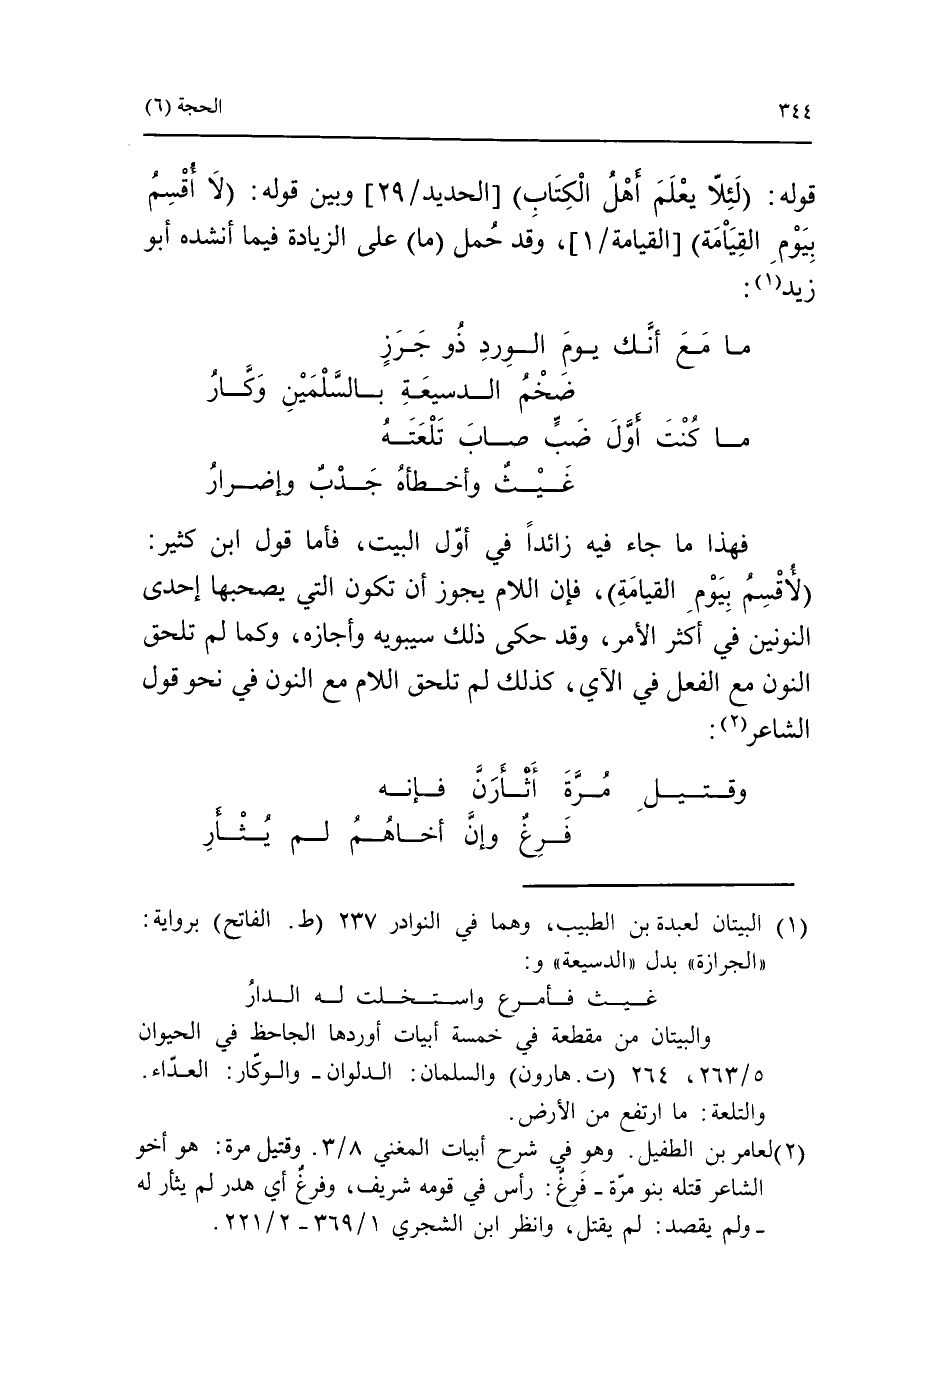 ٣٤٤ الحجة (٦)
قوله: (لَئِلّا يعْلَمَ أَهْلُ الْكِتَابِ) [الحديد/ ٢٩] وبين قوله: (لَا أُقْسِمُ
بِيَوْمِ القِيَاْمَة) [القيامة/ ١]، وقد حُمل (ما) على الزيادة فيما أنشده أبو
زيد(١):
ما مَعَ أنَّك يومَ الوِردِ ذُو جَرَزٍ
ضَخْمُ الدسيعَةِ بالسَّلْمَيْنِ وَكَّارُ
ما كُنْتَ أَوَّلَ ضَبٍّ صابَ تَلْعَتَهُ
غَيْثٌ وأخطأهُ جَدْبٌ وإضرارُ
فهذا ما جاء فيه زائداً في أوّل البيت، فأما قول ابن كثير:
(لأُقْسِمُ بِيَوْمِ القيامَةِ)، فإن اللام يجوز أن تكون التي يصحبها إحدى
النونين في أكثر الأمر، وقد حكى ذلك سيبويه وأجازه، وكما لم تلحق
النون مع الفعل في الآي، كذلك لم تلحق اللام مع النون في نحو قول
الشاعر(٢):
وقتيلِ مُرَّةَ أَثْأَرَنَّ فإنه
فَرِغٌ وإنَّ أخاهُمُ لم يُثْأَرِ
(١) البيتان لعبدة بن الطبيب، وهما في النوادر ٢٣٧ (ط. الفاتح) برواية:
«الجرازة» بدل «الدسيعة» و:
غيث فأمرع واستخلت له الدارُ
والبيتان من مقطعة في خمسة أبيات أوردها الجاحظ في الحيوان
٢٦٣/٥، ٢٦٤ (ت. هارون) والسلمان: الدلوان ـ والوكّار: العدّاء.
والتلعة: ما ارتفع من الأرض.
(٢) لعامر بن الطفيل. وهو في شرح أبيات المغني ٣/٨. وقتيل مرة: هو أخو
الشاعر قتله بنو مرّة ـ فَرِغٌ: رأس في قومه شريف، وفرغٌ أي هدر لم يثأر له
ـ ولم يقصد: لم يقتل، وانظر ابن الشجري ٣٦٩/١ ـ ٢٢١/٢.